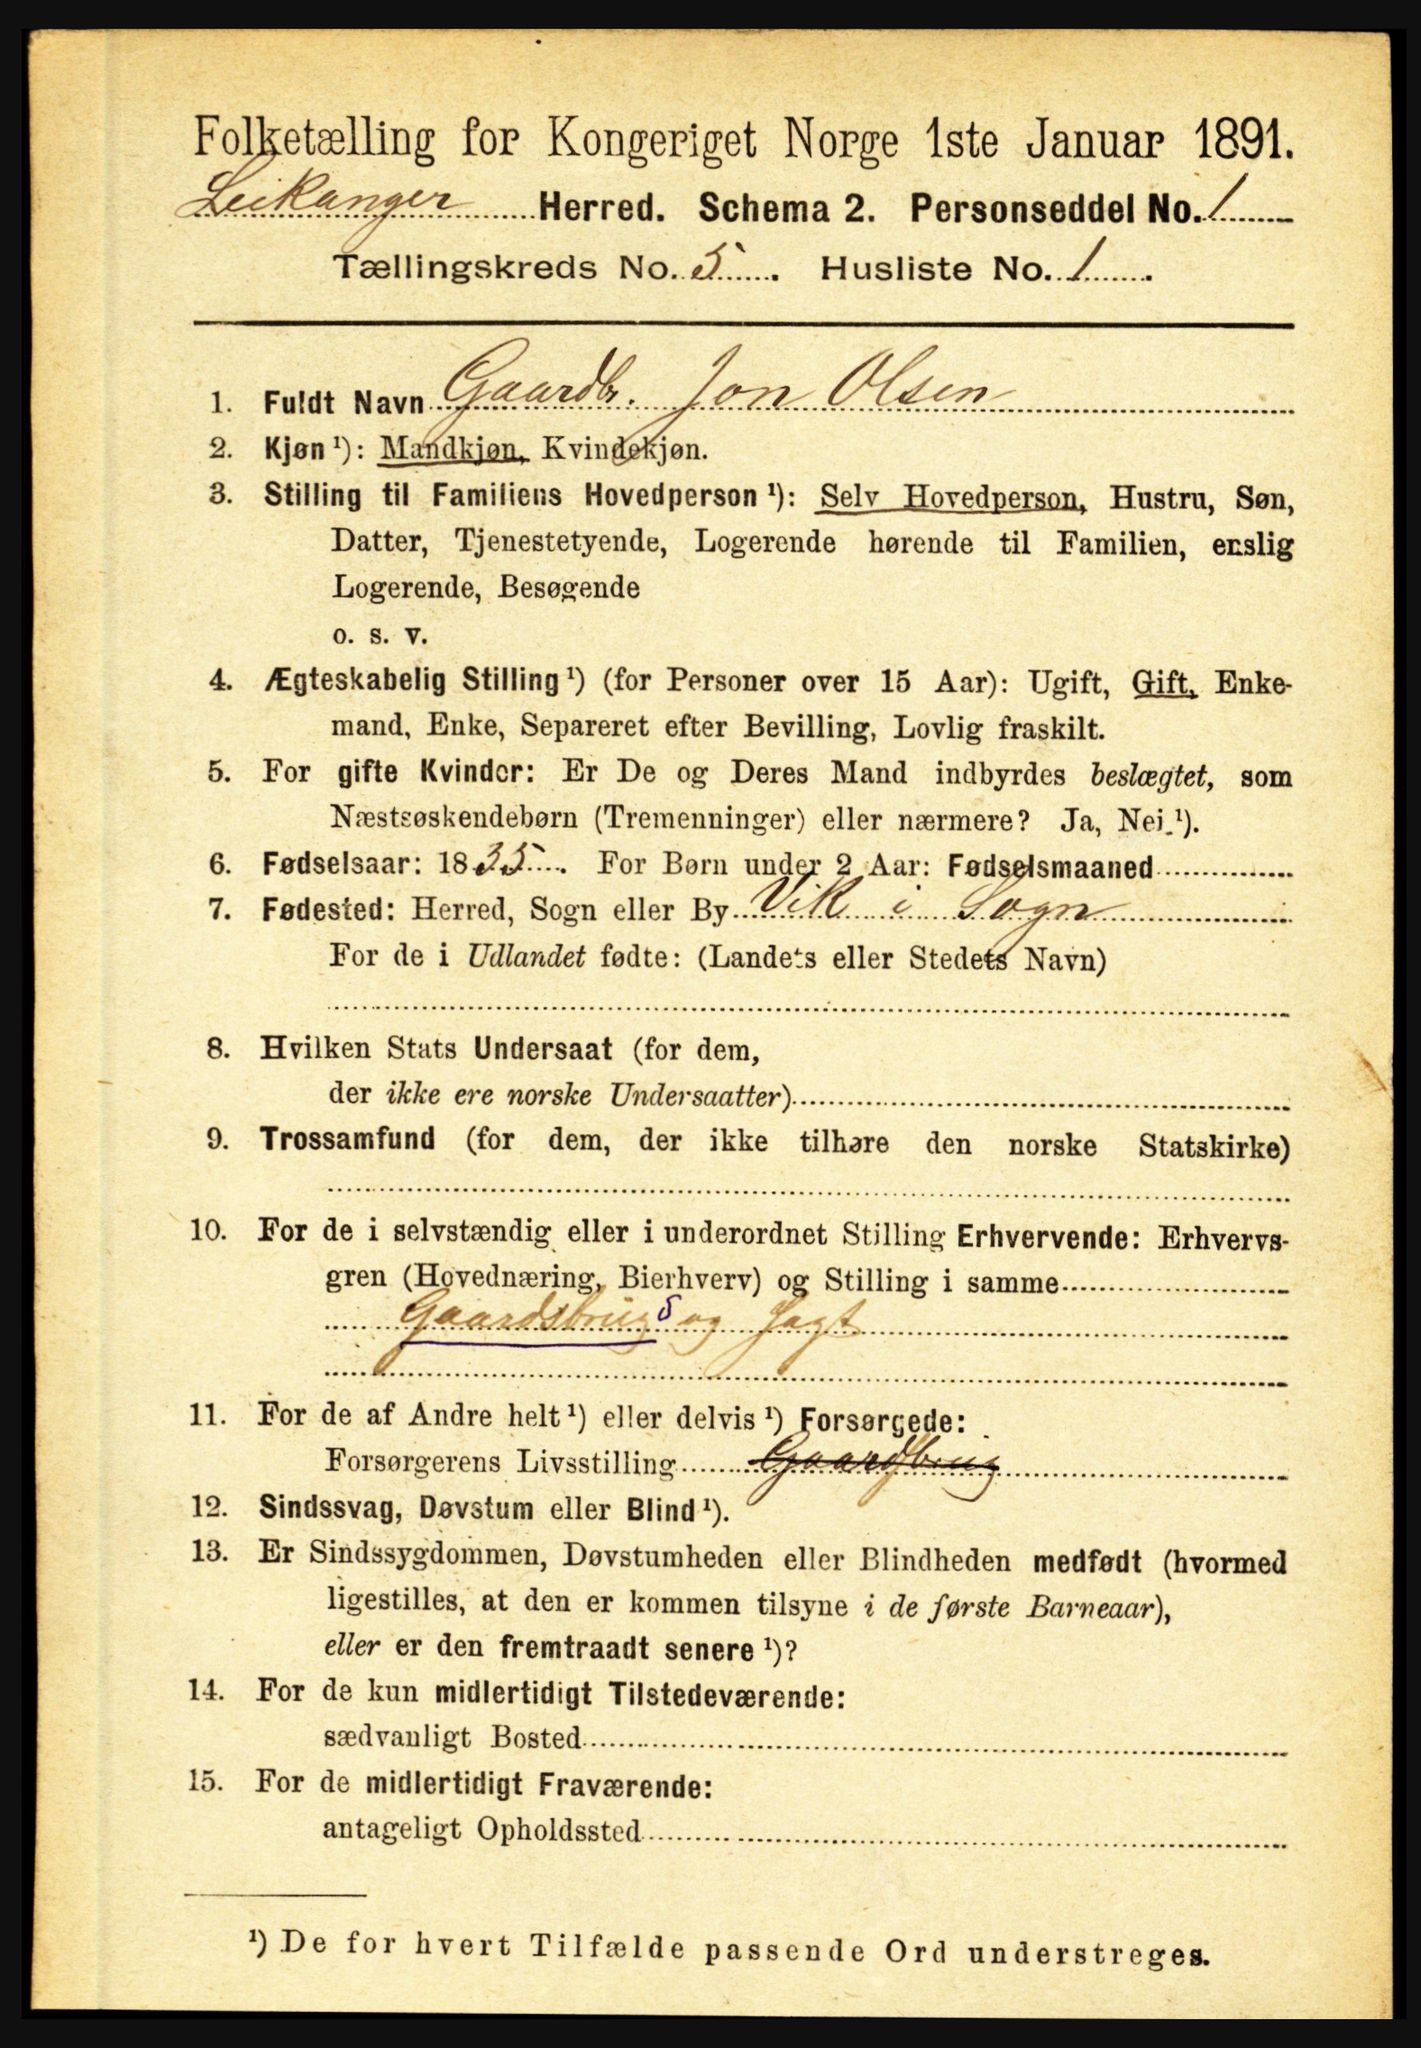 Folketælling for Kongeriget Norge 1ste Januar 1891.
Leikanger Herred. Schema 2. Personseddel No. 1
Tællingskreds No. 5. Husliste No. 1.
1. Fuldt Navn Gaardbr. Jon Olsen
2. Kjøn ¹): Mandkjøn, Kvindekjøn.
3. Stilling til Familiens Hovedperson ¹): Selv Hovedperson, Hustru, Søn,
Datter, Tjenestetyende, Logerende hørende til Familien, enslig
Logerende, Besøgende
o. s. v.
4. Ægteskabelig Stilling ¹) (for Personer over 15 Aar): Ugift, Gift, Enke-
mand, Enke, Separeret efter Bevilling, Lovlig fraskilt.
5. For gifte Kvinder: Er De og Deres Mand indbyrdes beslægtet, som
Næstsøskendebørn (Tremenninger) eller nærmere? Ja, Nei ¹).
6. Fødselsaar: 1835. For Børn under 2 Aar: Fødselsmaaned
7. Fødested: Herred, Sogn eller By Vik i Sogn
For de i Udlandet fødte: (Landets eller Stedets Navn)
8. Hvilken Stats Undersaat (for dem,
der ikke ere norske Undersaatter)
9. Trossamfund (for dem, der ikke tilhøre den norske Statskirke)
10. For de i selvstændig eller i underordnet Stilling Erhvervende: Erhvervs-
gren (Hovednæring, Bierhverv) og Stilling i samme
Gaardsbrug s og Jagt
11. For de af Andre helt ¹) eller delvis ¹) Forsørgede:
Forsørgerens Livsstilling Gaardbrug
12. Sindssvag, Døvstum eller Blind ¹).
13. Er Sindssygdommen, Døvstumheden eller Blindheden medfødt (hvormed
ligestilles, at den er kommen tilsyne i de første Barneaar),
eller er den fremtraadt senere ¹)?
14. For de kun midlertidigt Tilstedeværende:
sædvanligt Bosted
15. For de midlertidigt Fraværende:
antageligt Opholdssted
¹) De for hvert Tilfælde passende Ord understreges.